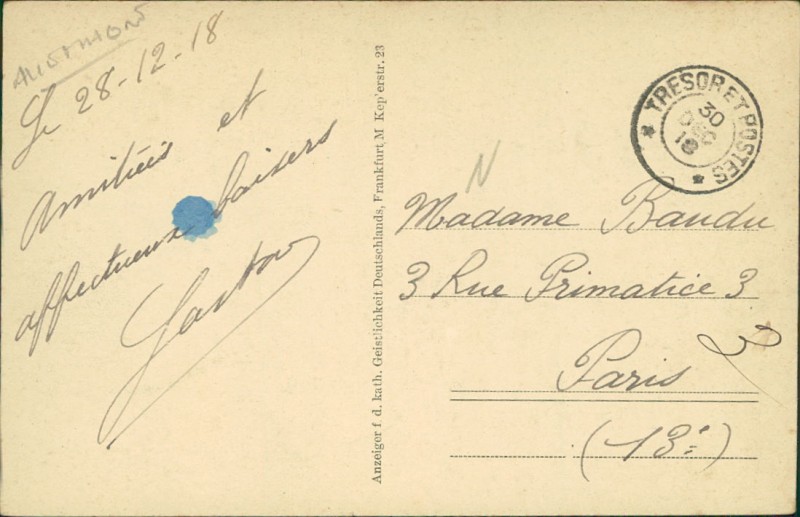 Le 28-12-18
Amitiés et
affectueux baisers
Gaston
Anzeiger f. d. kath. Geistlichkeit Deutschlands, Frankfurt M Kep'erstr. 23
TRESOR ET POSTES
30
DEC
18
N
Madame Baudu
3 Rue Primatice 3
Paris
(13e)